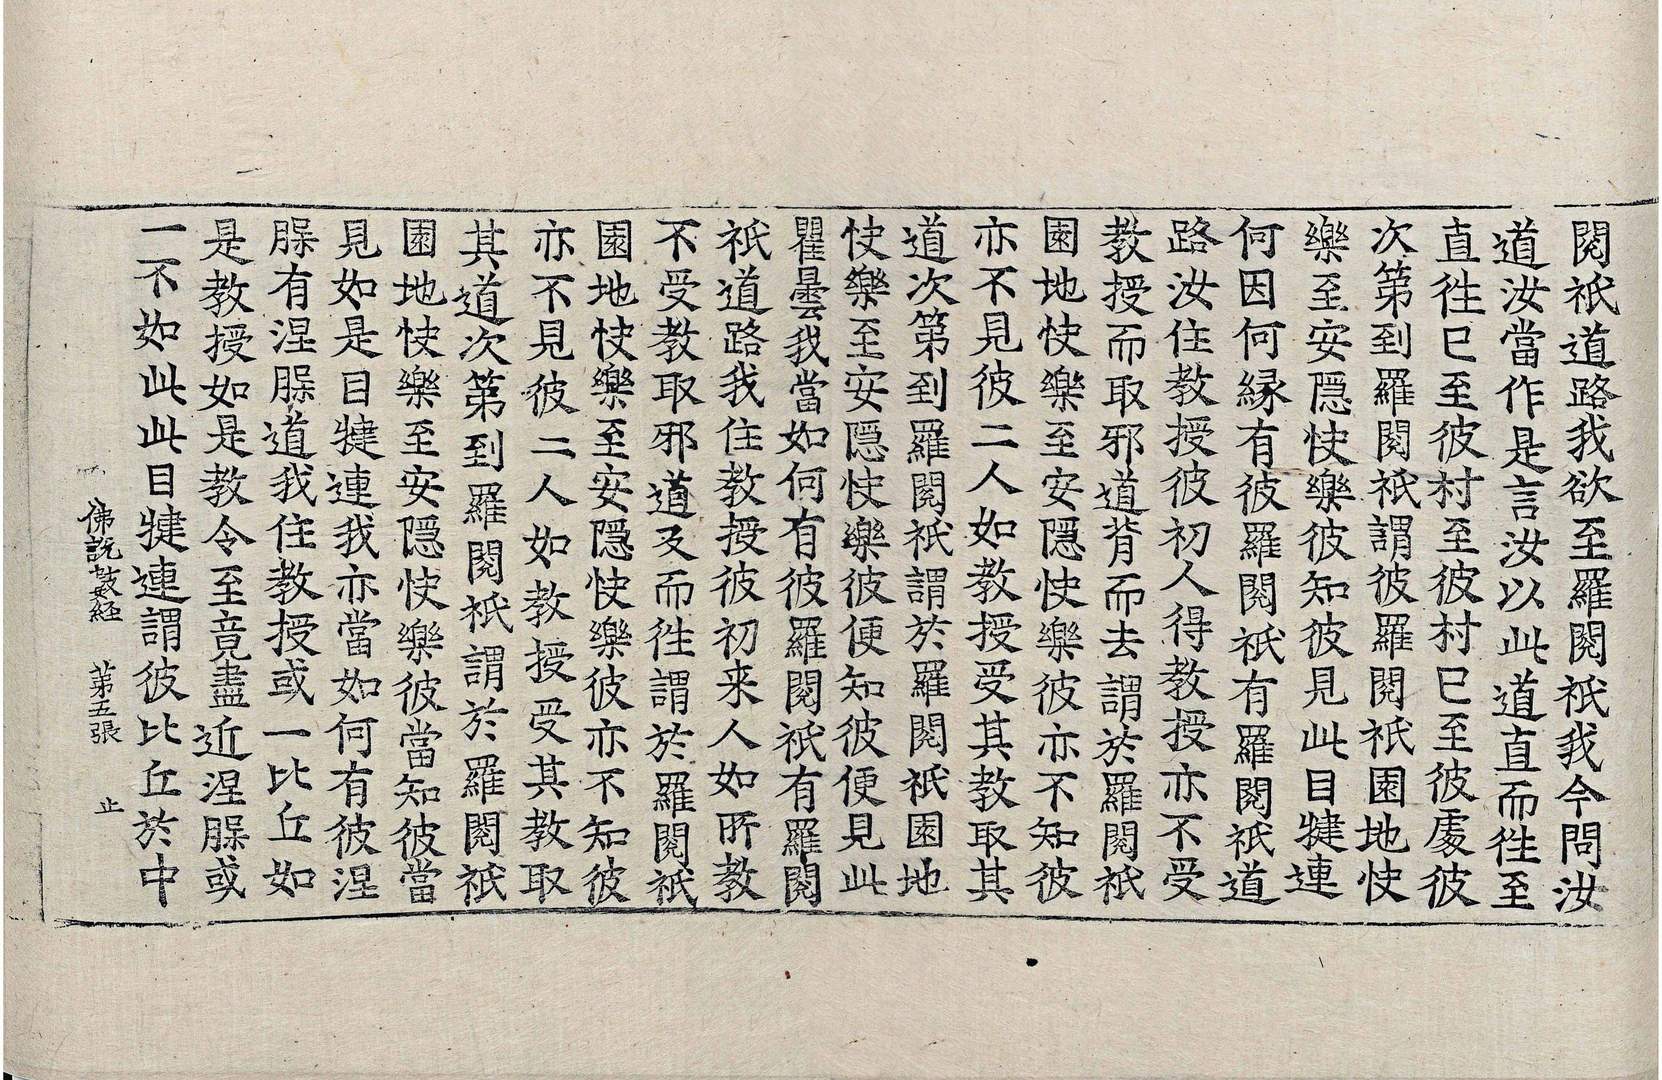 閱祇道路我欲至羅閱祇我今問汝
道汝當作是言汝以此道直而徃至
直徃已至彼村至彼村已至彼處彼
次第到羅閱祇謂彼羅閱祇園地快
樂至安隱快樂彼知彼見此目揵連
何因何緣有彼羅閱祇有羅閱祇道
路汝住教授彼初人得教授亦不受
教授而取邪道背而去謂於羅閱祇
園地快樂至安隱快樂彼亦不知彼
亦不見彼二人如教授受其教取其
道次第到羅閱祇謂於羅閱祇園地
快樂至安隱快樂彼便知彼便見此
瞿曇我當如何有彼羅閱祇有羅閱
祇道路我住教授彼初来人如所教
不受教取邪道及而徃謂於羅閱祇
園地快樂至安隱快樂彼亦不知彼
亦不見彼二人如教授受其教取
其道次第到羅閱祇謂於羅閱祇
園地快樂至安隱快樂彼當知彼當
見如是目揵連我亦當如何有彼涅
𦜝有涅𦜝道我住教授或一比丘如
是教授如是教令至竟盡近涅𦜝或
一不如此此目揵連謂彼比丘於中
佛說數經 第五張 止